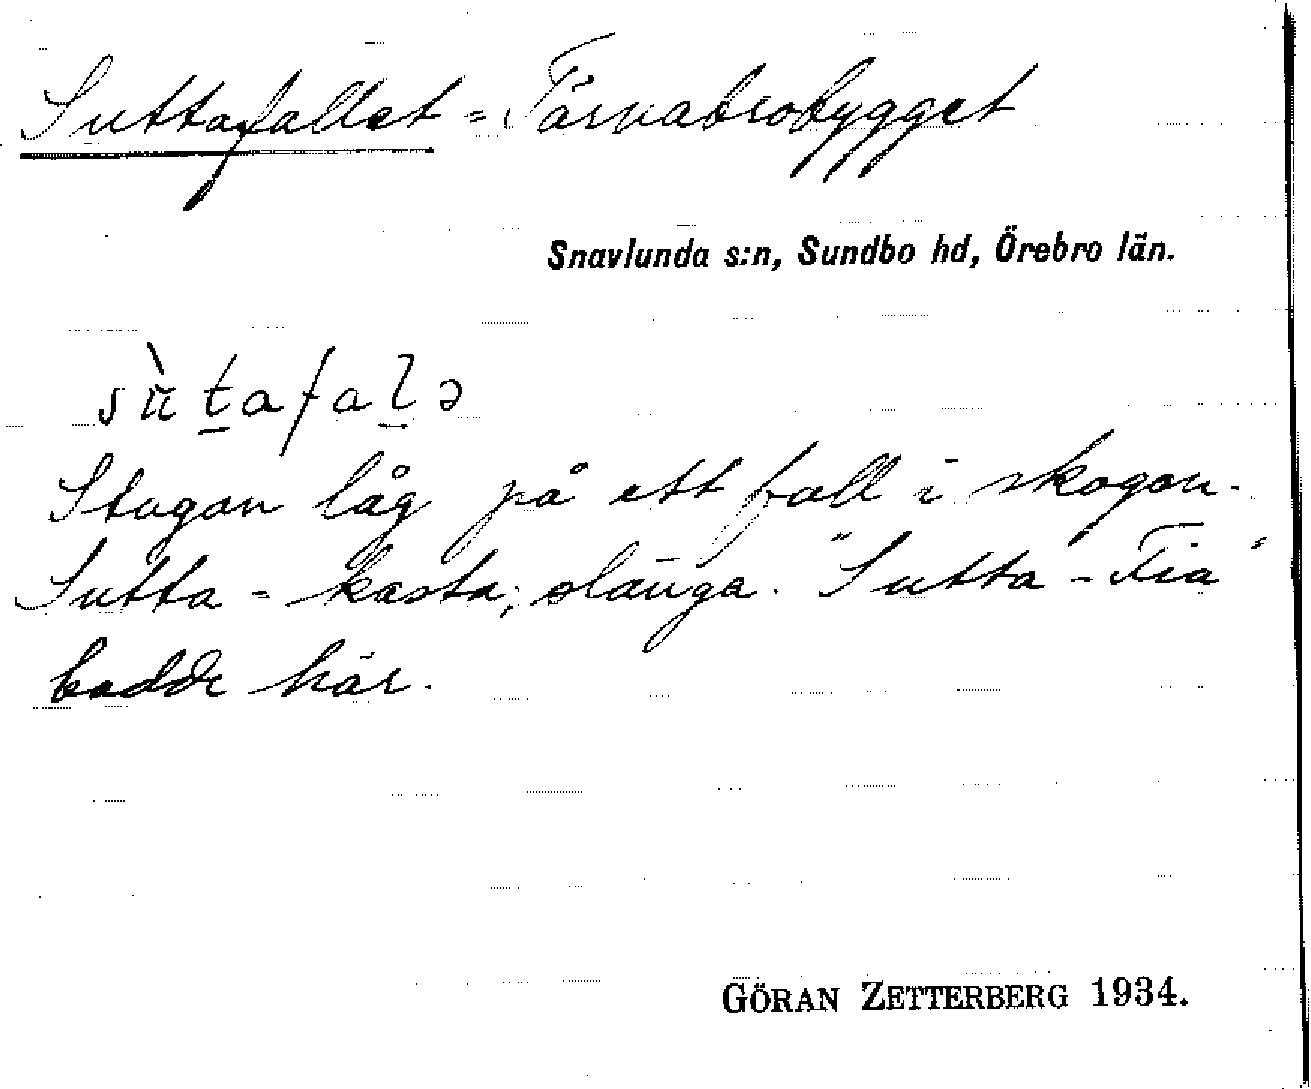 Suttafallet = Tärnabrobygget
Snavlunda s:n, Sundbo hd, Örebro län.
Stugan låg på ett fall i skogen.
Sutta - kasta, slänga. "Sutta-Fia"
bodde här.
GÖRAN ZETTERBERG 1934.